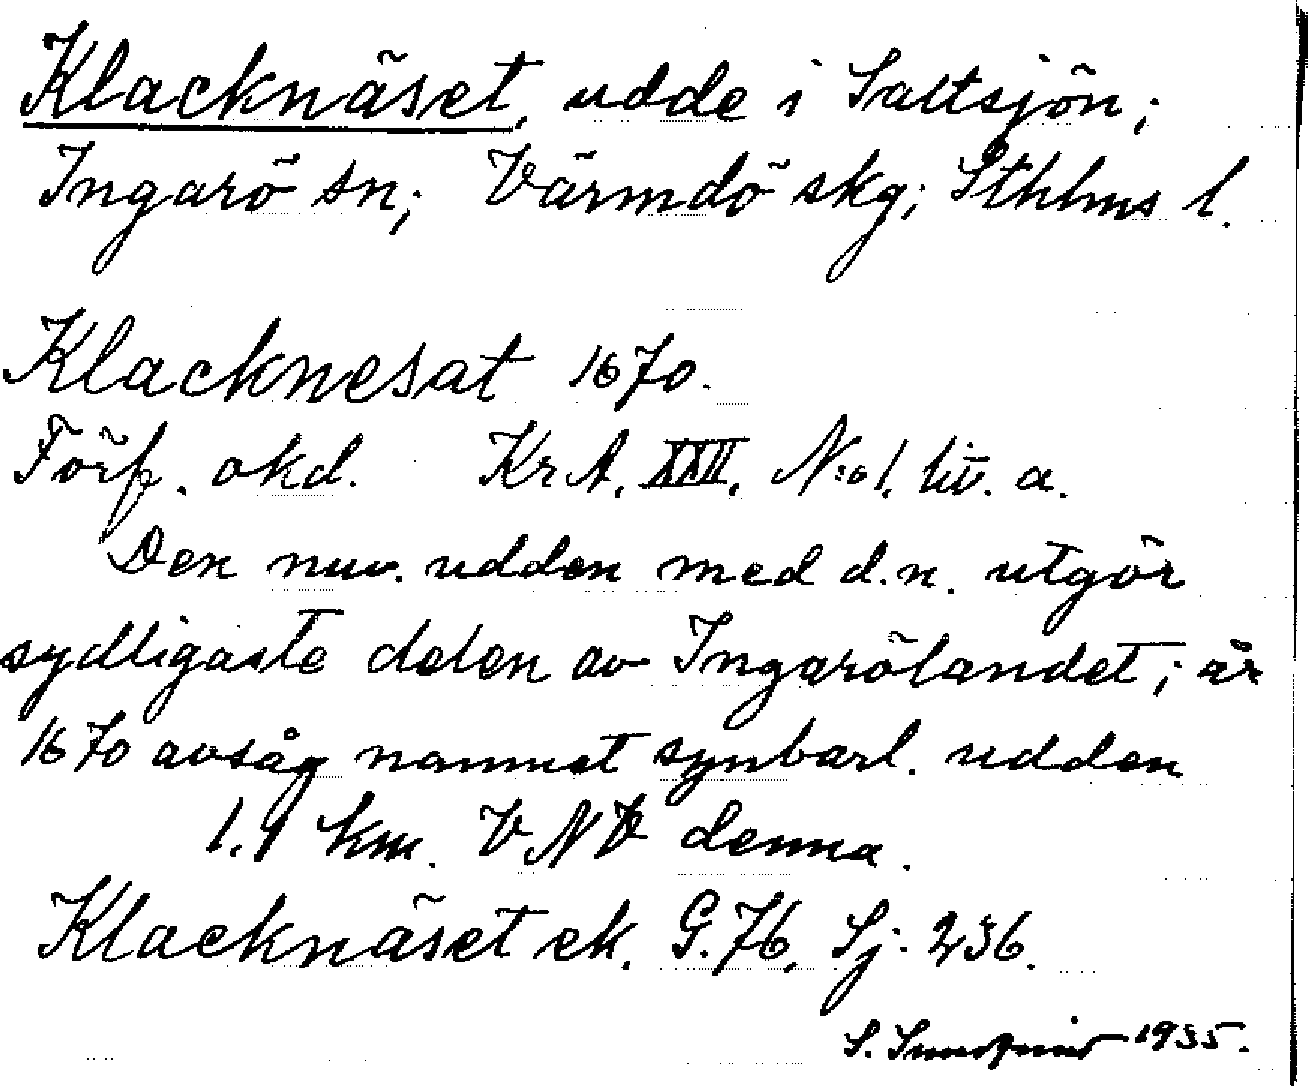 Klacknäset, udde i Saltsjön;
Ingarö sn; Värmdö skg; Sthlms l.
Klacknesat 1670.
Förf. okd. KrA. XXII. N:o 1. litt. a.
Den nuv. udden med d.n. utgör
sydligaste delen av Ingarölandet; år
1670 avsåg namnet synbarl. udden
1.1 km. VNV denna.
Klacknäset ek. G.76. Sj. 236.
S. 1935.